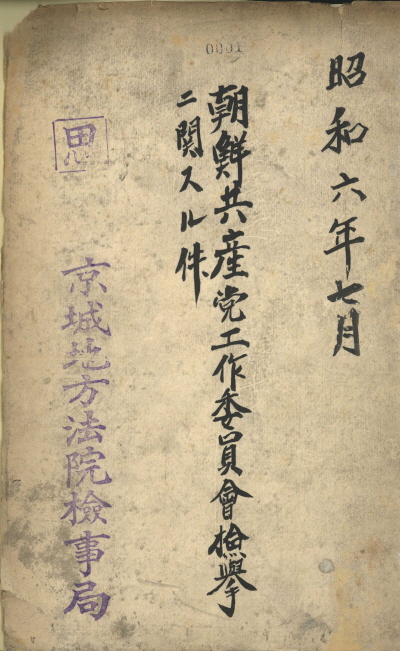 0001
昭和六年七月
朝鮮共産党工作委員會檢擧
ニ関スル件
思
京城地方法院檢事局